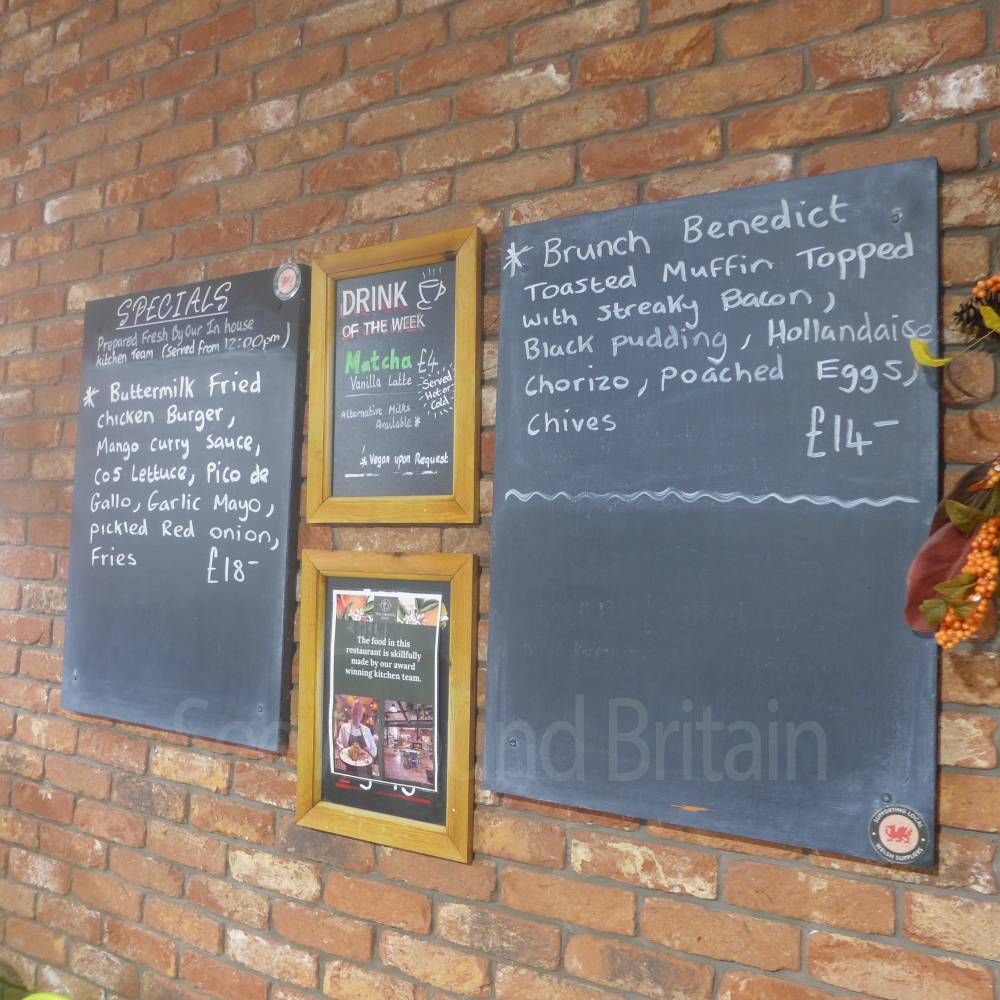 SPECIALS
Prepared Fresh By Our In house
kitchen Team (Served from 12:00pm)
* Buttermilk Fried
chicken Burger,
Mango curry sauce,
Cos Lettuce, Pico de
Gallo, Garlic Mayo,
pickled Red onion,
Fries £18-
DRINK
OF THE WEEK
Matcha £4
Vanilla Latte
-Served-
Hot or
Cold
Alternative Milks
Available *
* Vegan upon Request
The food in this
restaurant is skillfully
made by our award
winning kitchen team.
* Brunch Benedict
Toasted Muffin Topped
with streaky Bacon,
Black pudding, Hollandaise
Chorizo, Poached Eggs,
Chives £14-
SUPPORTING LOCAL
WELSH SUPPLIERS
Britain